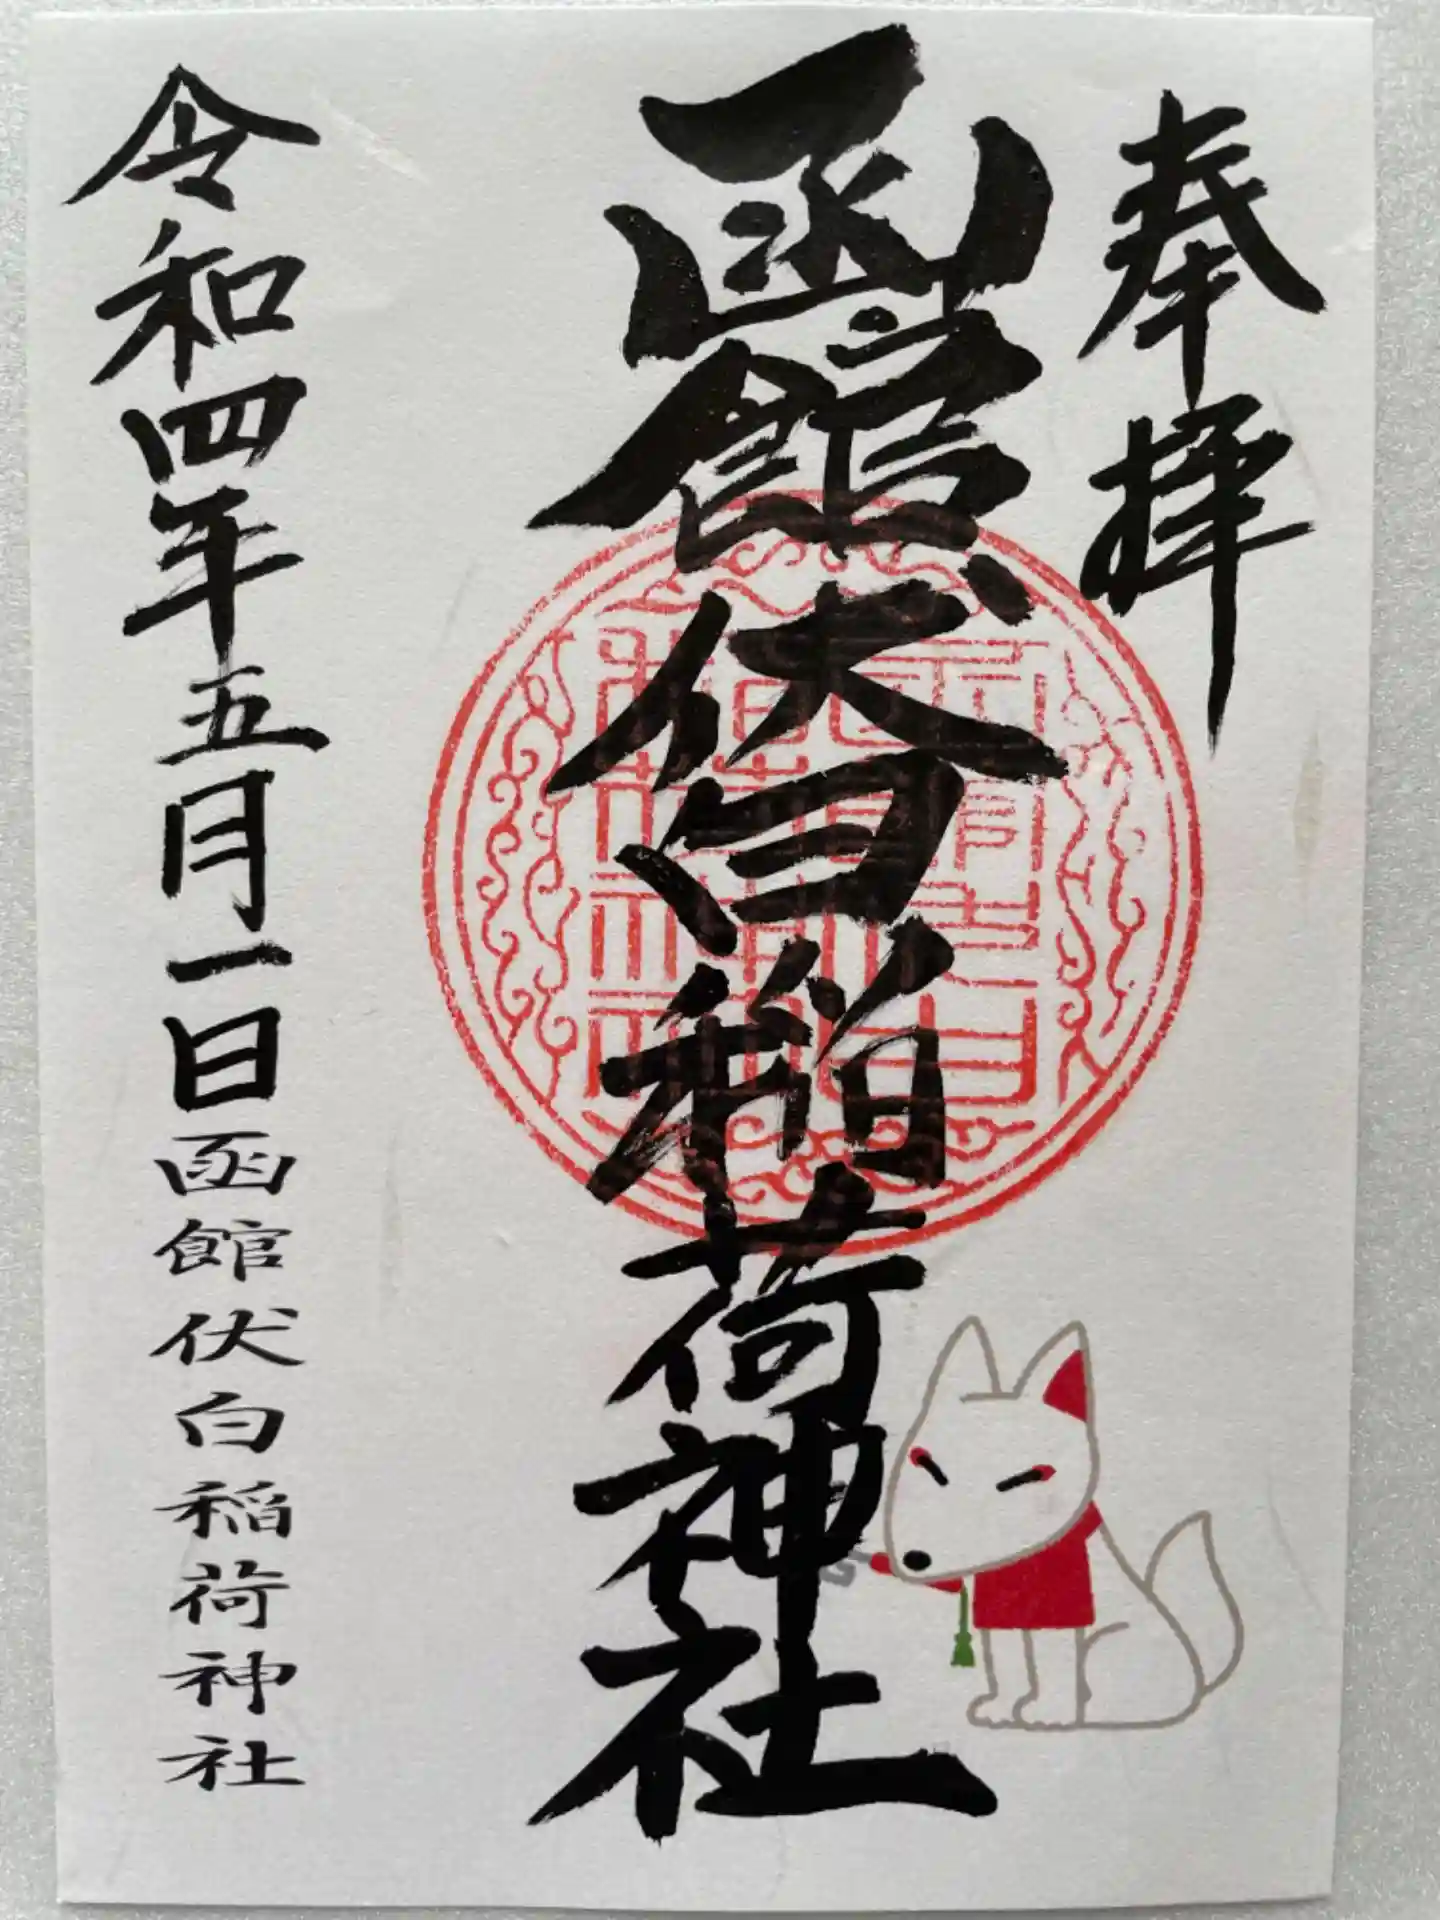 奉拝
函館伏白稲荷神社
令和四年五月一日函館伏白稲荷神社